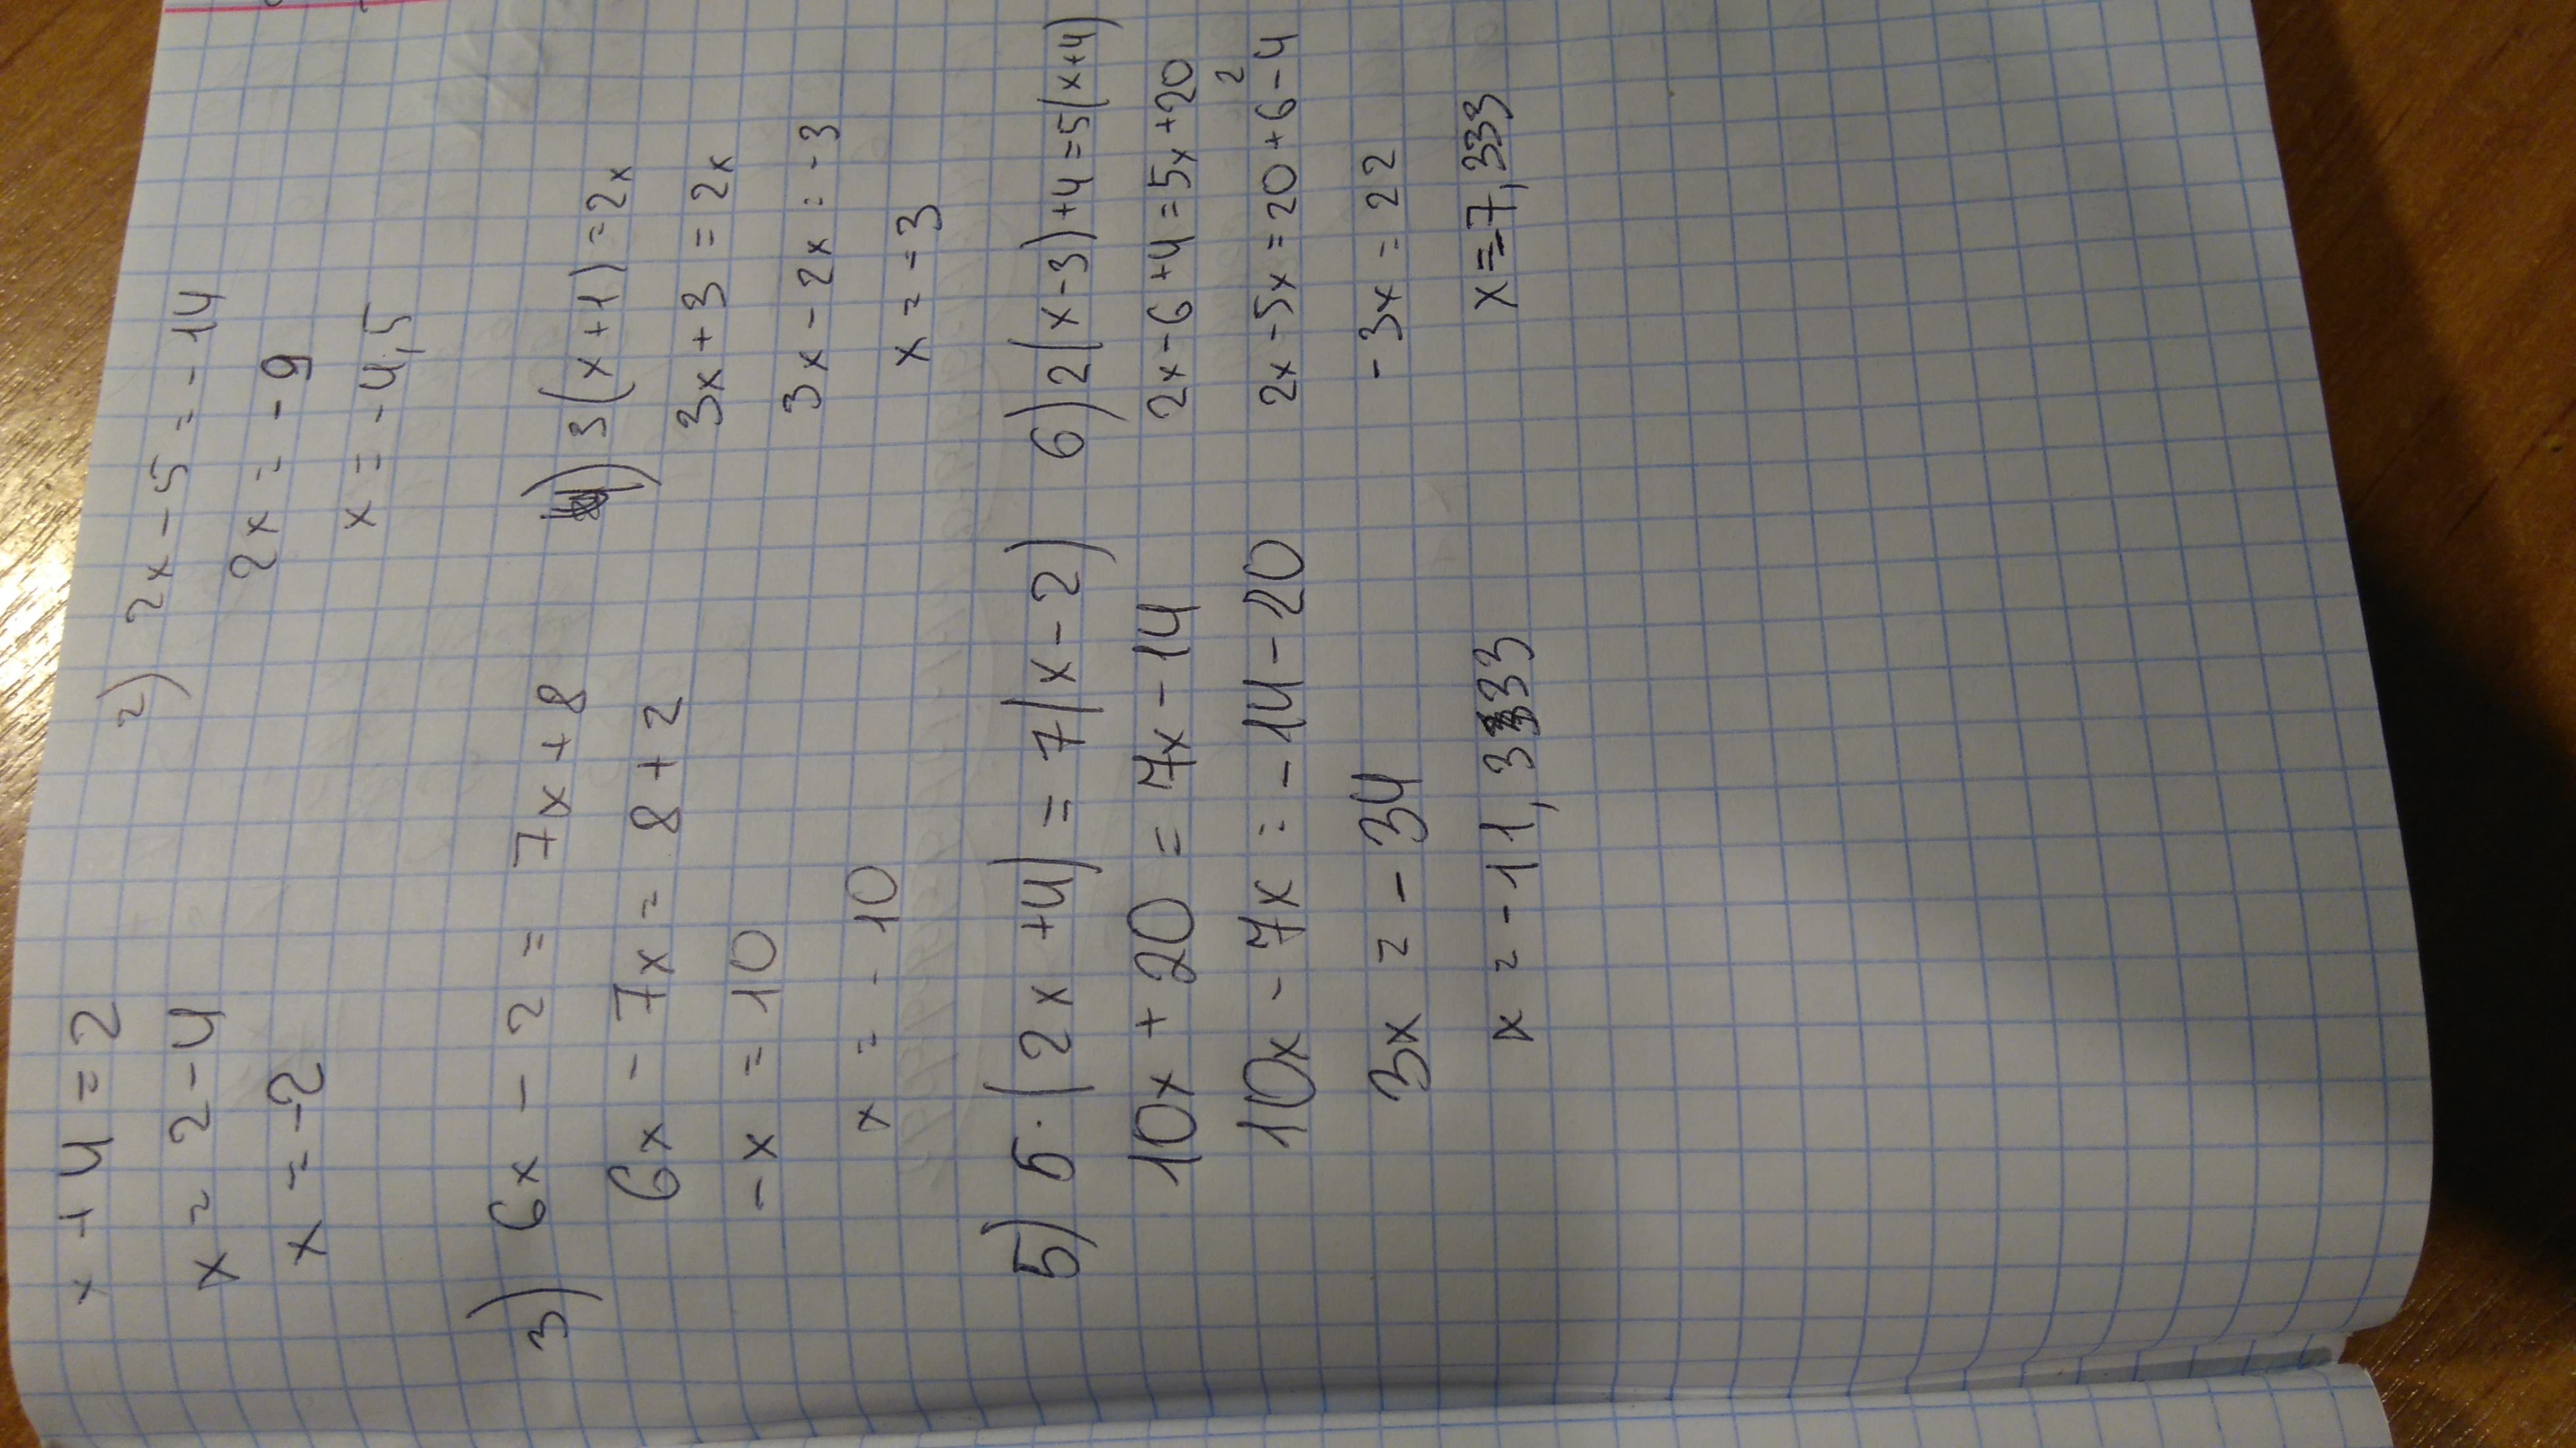 x + 4 = 2
x = 2 - 4
x = -2
2) 2x - 5 = - 14
2x = - 9
x = - 4,5
3) 6x - 2 = 7x + 8
6x - 7x = 8 + 2
-x = 10
x = - 10
4) 3(x+1) = 2x
3x + 3 = 2x
3x - 2x = - 3
x = - 3
5) 5·(2x + 4) = 7(x - 2)
10x + 20 = 7x - 14
10x - 7x = - 14 - 20
3x = - 34
x = - 11,3333
6) 2(x-3)+4=5(x+4)
2x - 6 + 4 = 5x + 20
2x - 5x = 20 + 6 - 4
2
- 3x = 22
x = -7,333